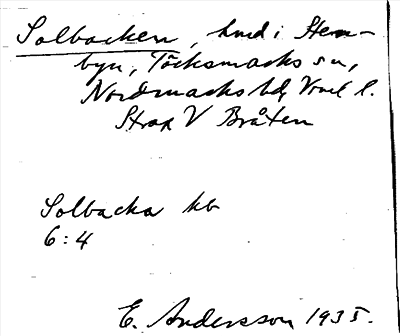 Solbacken, hmd i Hem-
byn, Töcksmarks sn,
Nordmarks hd, Vrml l.
Strax V Bråten
Solbacka kb
6:4
E. Andersson 1935.